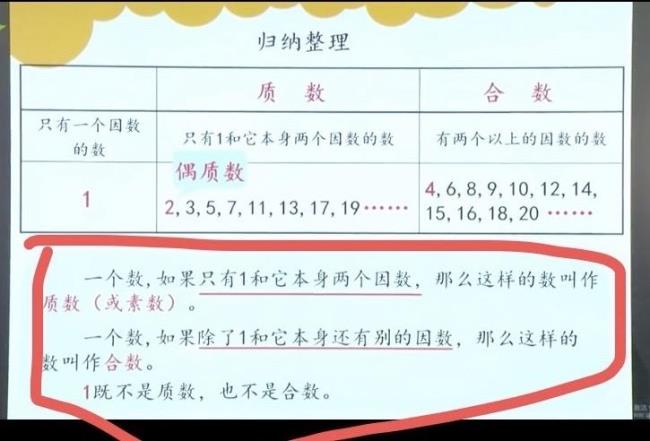 归纳整理
质 数
合 数
只有一个因数
的数
只有1和它本身两个因数的数
有两个以上的因数的数
1
偶质数
2,3,5,7,11,13,17,19……
4,6,8,9,10,12,14,
15,16,18,20 ……
一个数,如果只有1和它本身两个因数，那么这样的数叫作
质数（或素数）。
一个数,如果除了1和它本身还有别的因数，那么这样的
数叫作合数。
1既不是质数，也不是合数。